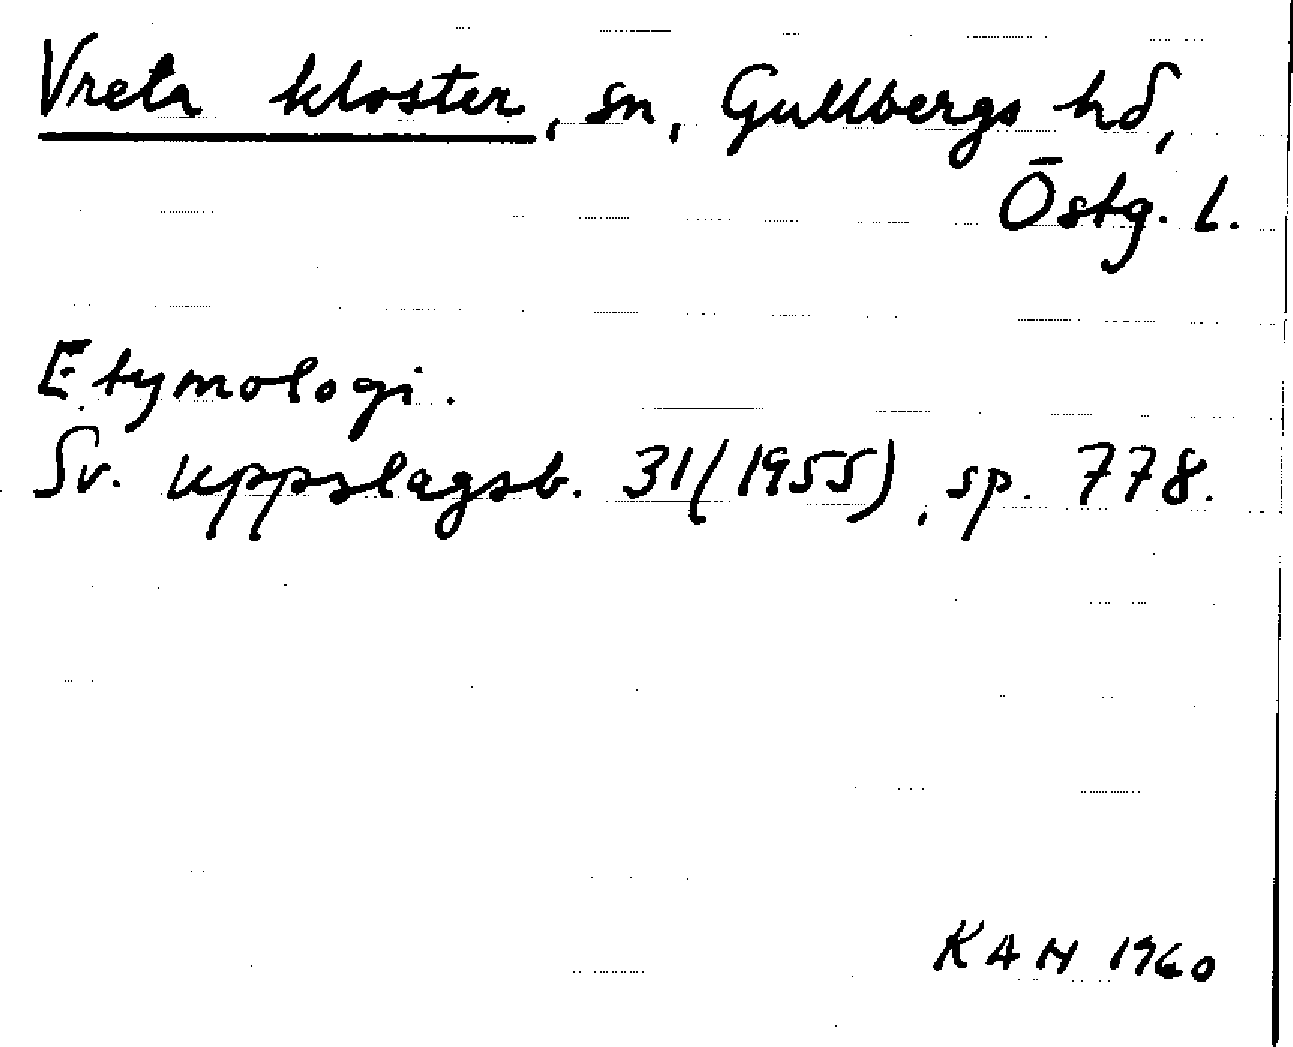 Vreta kloster, sn, Gullbergs hd,
Östg. l.
Etymologi.
Sv. uppslagsb. 31(1955), sp. 778.
KAN 1960